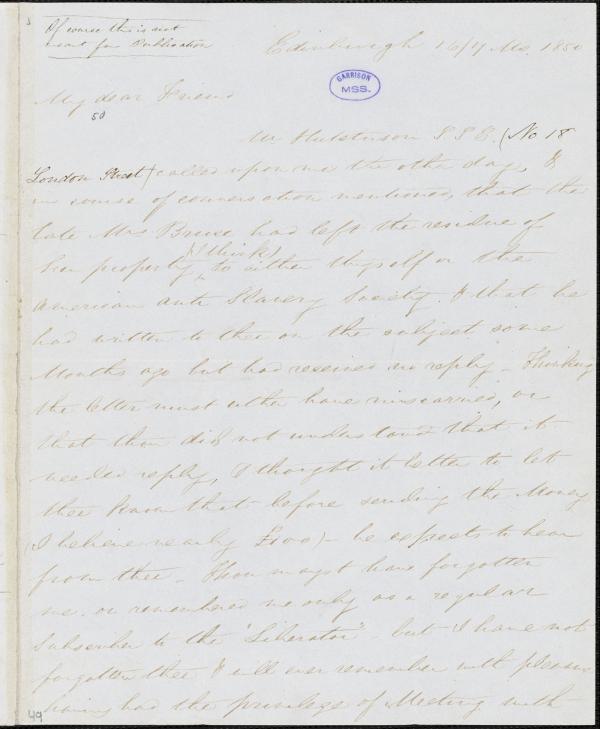 Of course this is not
meant for Publication
Edinburgh 16/7 Mo. 1850
GARRISON
MSS.
My dear Friend
50
Mr Hutchinson S.S.C. (No 18
London Street) called upon me the other day, &
in course of conversation mentioned, that the
late Mrs Bruce had left the residue of
her property, (I think) to either thyself or the
American anti Slavery Society. & that he
had written to thee on the subject some
Months ago but had received no reply - Thinking
the letter must either have miscarried, or
that thou did not understand that it
needed reply, I thought it better to let
thee know that before sending the Money
(I believe nearly £100) - he expects to hear
from thee - Thou mayst have forgotten
me. or remembered me only as a regular
Subscriber to the "Liberator" - but I have not
forgotten thee & will ever remember with pleasure
having had the privilege of Meeting with
49